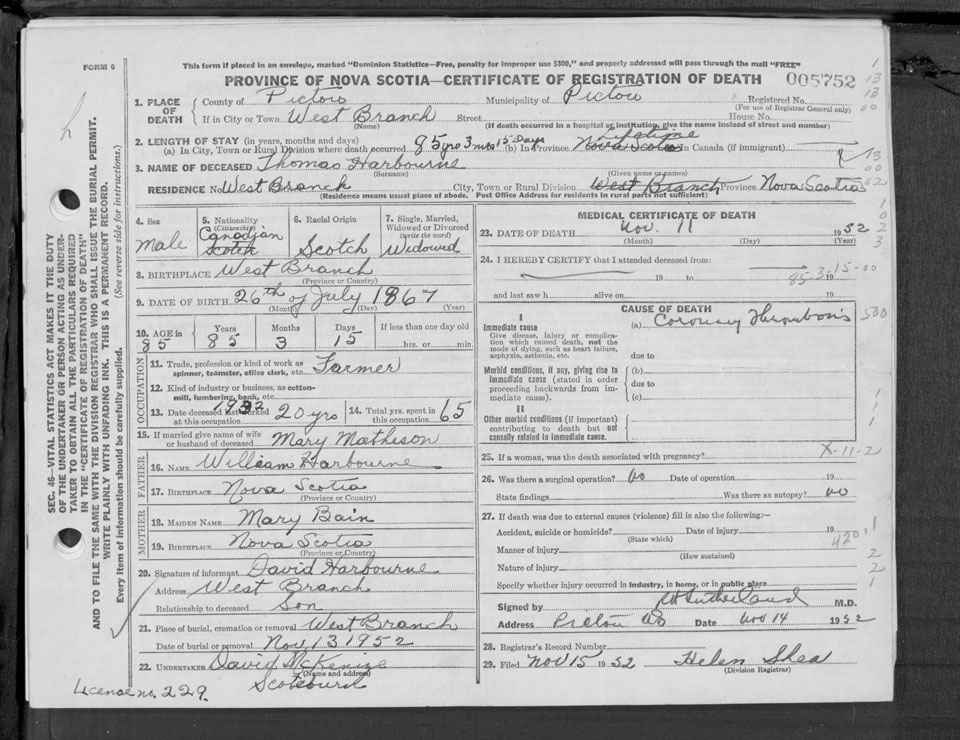 This form if placed in an envelope, marked "Dominion Statistics—Free, penalty for improper use $300," and properly addressed will pass through the mail "FREE"
FORM 6
PROVINCE OF NOVA SCOTIA—CERTIFICATE OF REGISTRATION OF DEATH 005752
1. PLACE OF DEATH
County of Pictou Municipality of Pictou Registered No.
(For use of Registrar General only)
If in City or Town West Branch Street House No.
(Name) (If death occurred in a hospital or institution, give the name instead of street and number)
2. LENGTH OF STAY (in years, months and days)
(a) In City, Town or Rural Division where death occurred 85 yrs 3 mts 15 Days (b) In Province Nova Scotia Lifetime In Canada (if immigrant)
3. NAME OF DECEASED Thomas Harbourne
(Surname) (Given name or names)
RESIDENCE No West Branch City, Town or Rural Division West Branch Province Nova Scotia
(Residence means usual place of abode. Post Office Address for residents in rural parts not sufficient)
4. Sex Male
5. Nationality (Citizenship) Canadian Scotch
6. Racial Origin Scotch
7. Single, Married, Widowed or Divorced (write the word) Widowed
8. BIRTHPLACE West Branch
(Province or Country)
9. DATE OF BIRTH 26th of July 1867
(Month) (Day) (Year)
10. AGE in 85 Years 85 Months 3 Days 15 If less than one day old hrs. or min.
OCCUPATION
11. Trade, profession or kind of work as spinner, teamster, office clerk, etc. Farmer
12. Kind of industry or business, as cotton-mill, lumbering, bank, etc.
13. Date deceased last worked at this occupation 1932 20 yrs
14. Total yrs. spent in 65
15. If married give name of wife or husband of deceased Mary Matheson
FATHER
16. NAME William Harbourne
17. BIRTHPLACE Nova Scotia
(Province or Country)
MOTHER
18. MAIDEN NAME Mary Bain
19. BIRTHPLACE Nova Scotia
(Province or Country)
20. Signature of informant David Harbourne
Address West Branch
Relationship to deceased Son
21. Place of burial, cremation or removal West Branch
Date of burial or removal Nov 13 1952
22. UNDERTAKER David McKenize
(Name and address)
Scotsburn
License no. 229
MEDICAL CERTIFICATE OF DEATH
23. DATE OF DEATH Nov. 11 1952
(Month) (Day) (Year)
24. I HEREBY CERTIFY that I attended deceased from:
19 to 19
85-3-15-00
and last saw h alive on 19
CAUSE OF DEATH
I
Immediate cause
Give disease, injury or complication which caused death, not the mode of dying, such as heart failure, asphyxia, asthenia, etc.
(a) Coronary Thrombosis
due to
Morbid conditions, if any, giving rise to immediate cause (stated in order proceeding backwards from immediate cause).
(b)
due to
(c)
II
Other morbid conditions (if important) contributing to death but not causally related to immediate cause.
25. If a woman, was the death associated with pregnancy? X-11-2
26. Was there a surgical operation? no Date of operation 19
State findings Was there an autopsy? no
27. If death was due to external causes (violence) fill in also the following:—
Accident, suicide or homicide? Date of injury 19
(State which)
420.1
Manner of injury
(How sustained)
Nature of injury
Specify whether injury occurred in industry, in home, or in public place
Signed by Sutherland M.D.
Address Pictou NS Date Nov 14 1952
28. Registrar's Record Number
29. Filed Nov 15 1952 Helen Shea
(Division Registrar)
SEC. 46—VITAL STATISTICS ACT MAKES IT THE DUTY
OF THE UNDERTAKER OR PERSON ACTING AS UNDER-
TAKER TO OBTAIN ALL THE PARTICULARS REQUIRED
IN THE "CERTIFICATE OF REGISTRATION OF DEATH"
AND TO FILE THE SAME WITH THE DIVISION REGISTRAR WHO SHALL ISSUE THE BURIAL PERMIT.
WRITE PLAINLY WITH UNFADING INK. THIS IS A PERMANENT RECORD.
Every item of information should be carefully supplied. (See reverse side for instructions.)